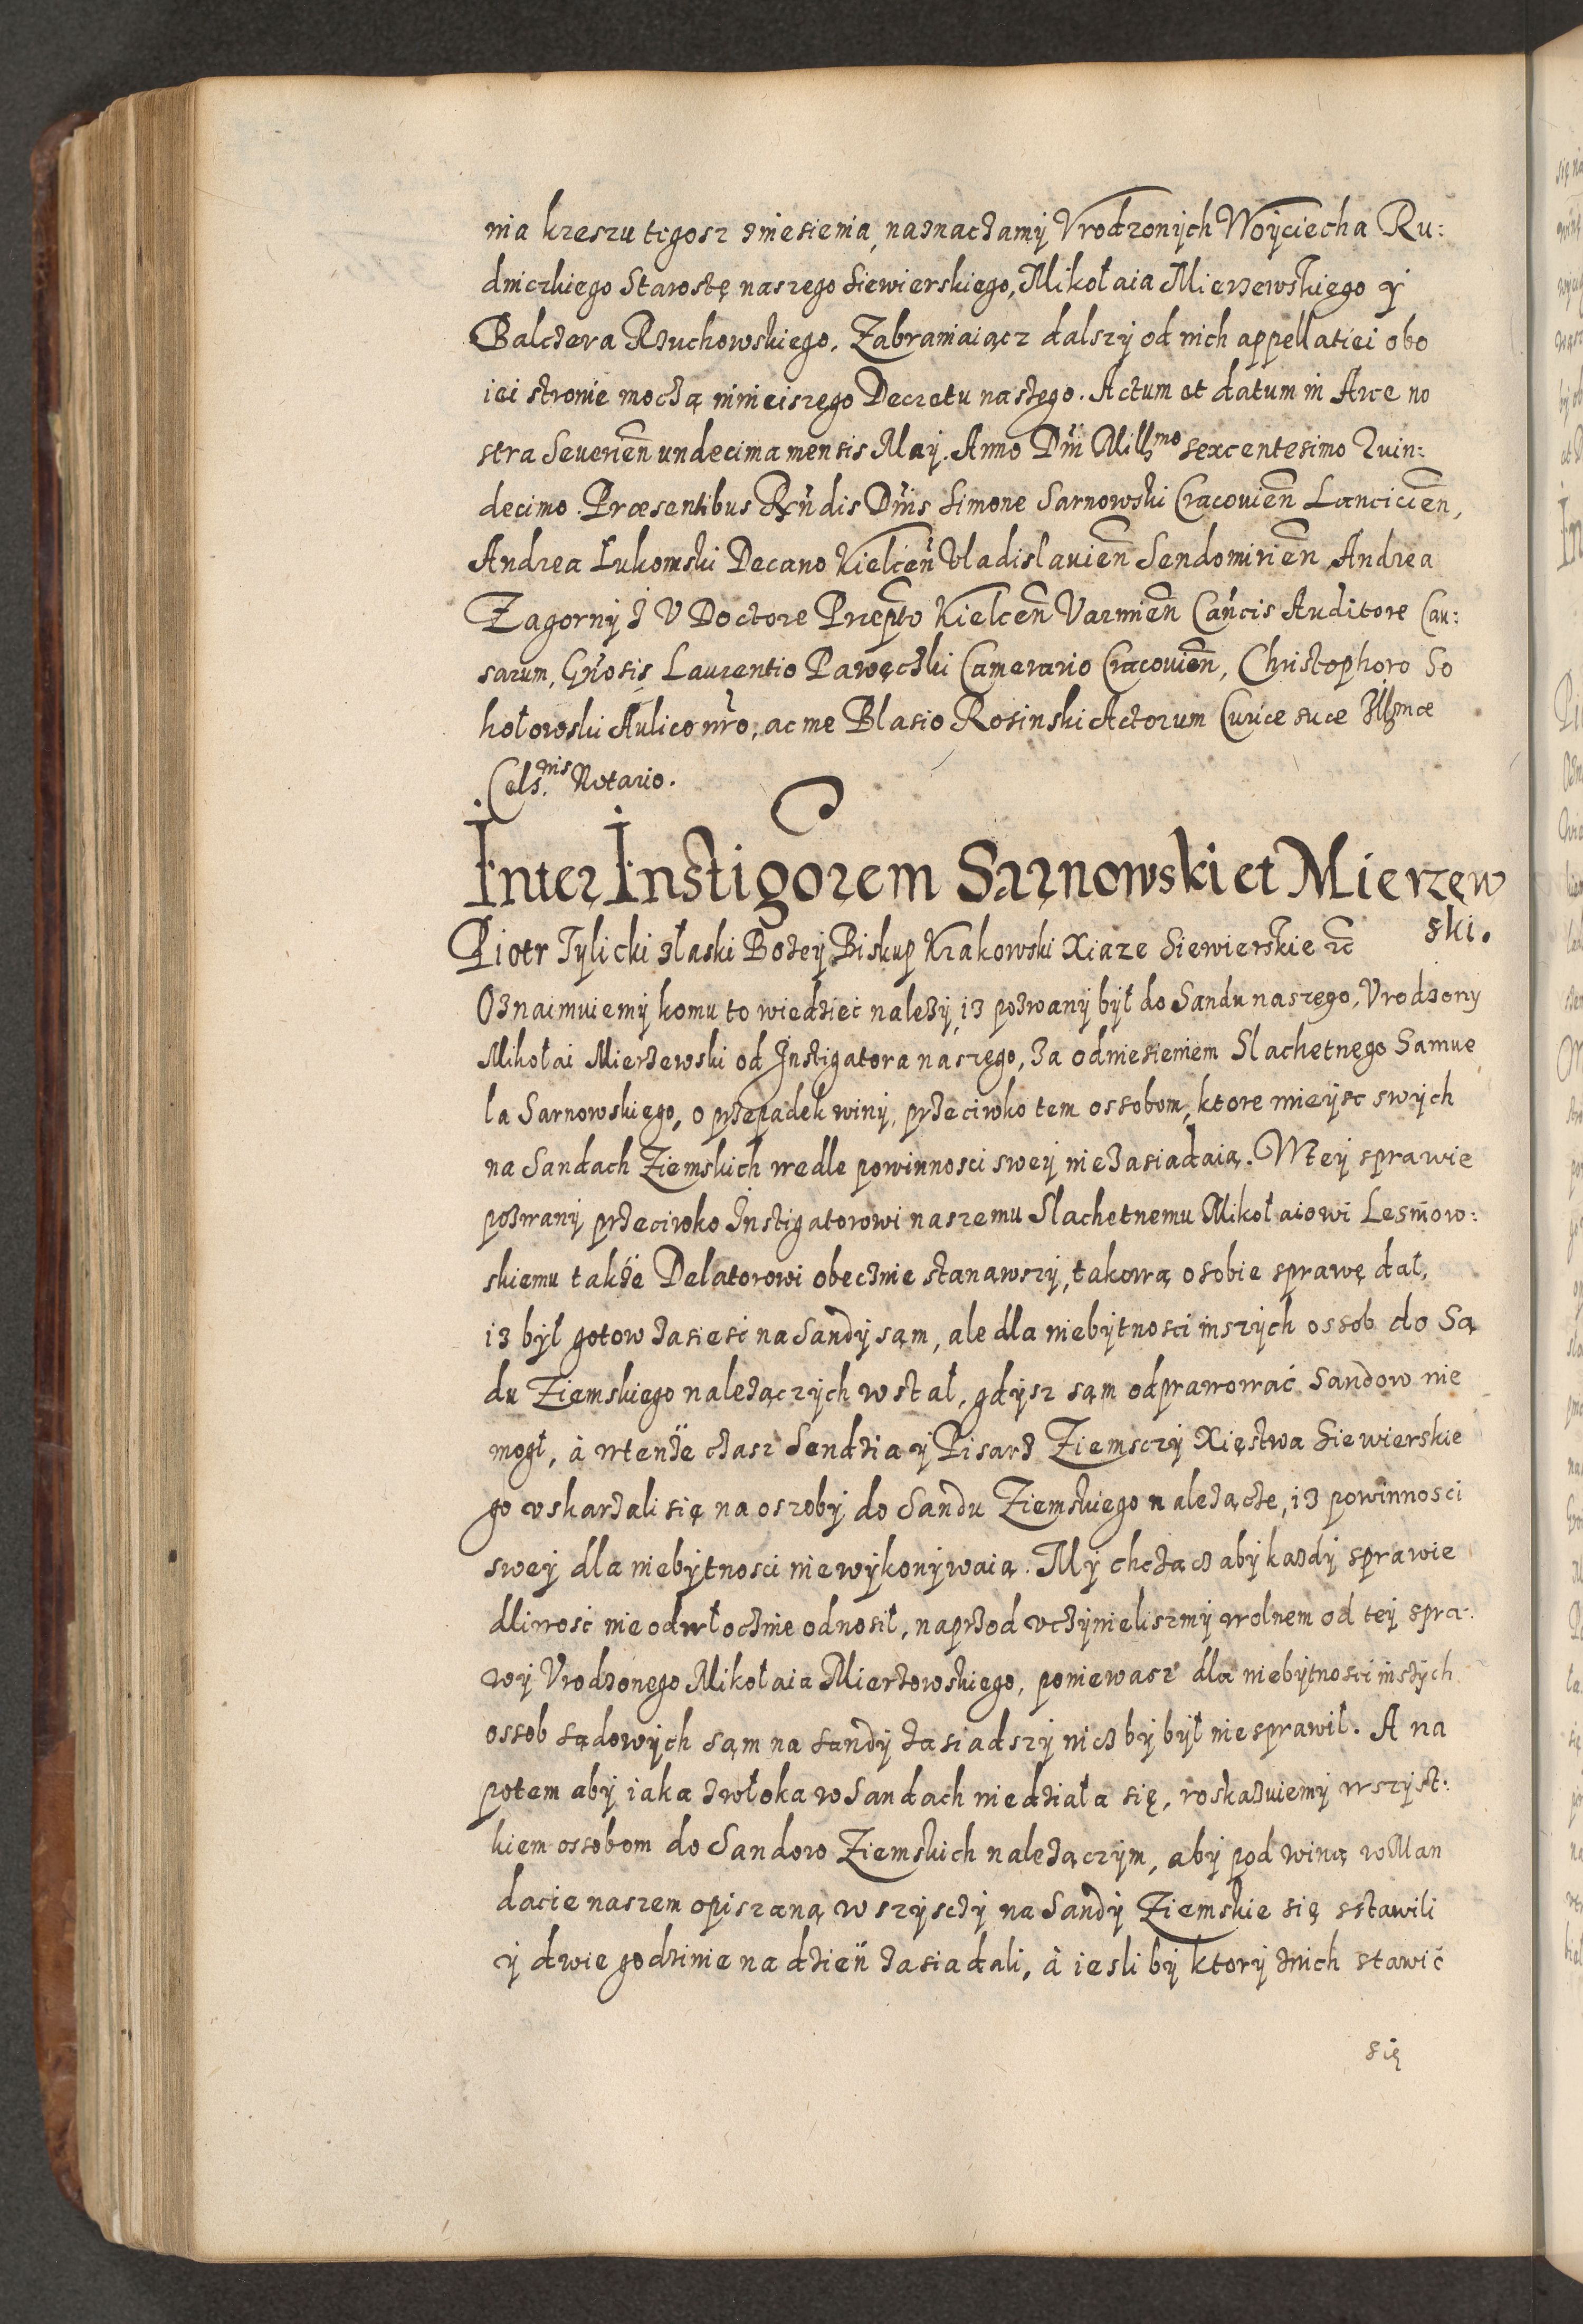 nia kreszu tegosz zniesienia, naznaczamÿ Vrodzonÿch Woÿciecha Ru:
dniczkiego Starostę naszego Siewierskiego, Mikołaia Mierzewskiego ÿ
Balczera Rzuchowskiego. Zabraniaiącz dalszÿ od nich appellatiei obo
iei stronie moczą ninieiszego Decretu naszego. Actum et datum in Arce no
stra Seuerien̄ undecima mensis Maÿ. Anno Dn̄i Mill͞mo sexcentesimo Quin:
decimo. Præsentibus Rn̄dis Dn̄is Simone Sarnowski Cracouien̄ Lancicien̄,
Andrea Łukomski Decano Kielcen̄ Vladislauien̄ Sendomirien̄, Andrea
Zagornÿ J V Doctore Præpto Kielcen̄ Varmien̄ Can̄cis Auditore Cau:
sarum, Gn̄osis Laurentio Pawęczki Camerario Cracouien̄, Christophoro So
hołowski Aulico nr̄o, ac me Blasio Rosinski Actorum Curiæ suæ Illmæ
Cels.nis Notario.
Inter Instigorem Sarnowski et Mierzęw
ski.
Piotr Tÿlicki złaski Bożeÿ Biskup Krakowski Xiaze Siewierskie etc̄
Oznaimuiemÿ komu to wiedzieć należÿ, iż pozwanÿ bÿł do Sandu naszego, Vrodzonÿ
Mikołai Mierzewski od Instigatora naszego, za odniesieniem Slachetnego Samue
la Sarnowskiego, o przepadek winÿ, przeciwko tem ossobom, ktore mieÿsc swÿch
na Sandach Ziemskich wedle powinnosci sweÿ nie zasiadaią. Wteÿ sprawie
pozwanÿ przeciwko Instigatorowi naszemu Slachetnemu Mikołaiowi Lesniow:
skiemu także Delatorowi obecznie stanąwszÿ, takową o sobie sprawę dał,
iż bÿł gotow zasiesć na Sandÿ sąm, ale dla niebÿtnosci inszÿch ossob do Są
du Ziemskiego należączÿch wstał, gdÿsz sąm odprawować Sandow nie
mogł, à wtenże czasz Sendzia ÿ Pisarz Ziemsczÿ Xięstwa Siewierskie
go vskarzali się na oszobÿ do Sandu Ziemskiego należącze, iż powinnosci
sweÿ dla niebÿtnosci niewÿkonÿwaią. Mÿ chcząc abÿ kazdÿ sprawie
dliwość nieodwłocznie odnosił, naprzod vczÿnielismÿ wolnem od teÿ spra:
wÿ Vrodzonego Mikołaia Mierzowskiego, poniewasz dla niebÿtnosci inszÿch
ossob sądowÿch sąm na sandÿ zasiadszÿ nicz bÿ bÿł nie sprawił. A na
potem abÿ iaka zwłoka w Sandach niedziała się, roskazuiemÿ wszÿst:
kiem ossobom do Sandow Ziemskich należączÿm, abÿ pod winą w Man
dacie naszem opiszaną wszÿsczÿ na Sandÿ Ziemskie się sstawili
ÿ dwie godzinie na dzień zasiadali, à iesli bÿ ktorÿ znich stawić
się